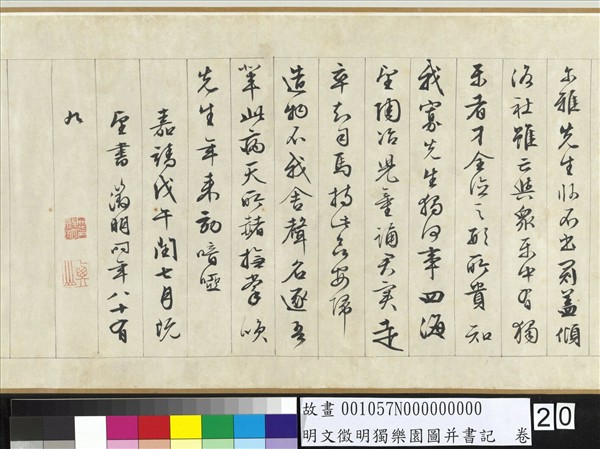 尔雅先生臥不出冠蓋傾
洛社雖云與衆樂中有獨
樂者才全德不形所貴知
我寡先生獨何事四海
望陶冶兒童誦君實走
卒知司馬持此欲安歸
造物不我舍聲名逐吾
輩此病天所赭撫掌笑
先生年來効喑啞
嘉靖戊午閏七月既
望書徵明時年八十有
九
故畫 001057N000000000
明文徵明獨樂園圖并書記 卷
20